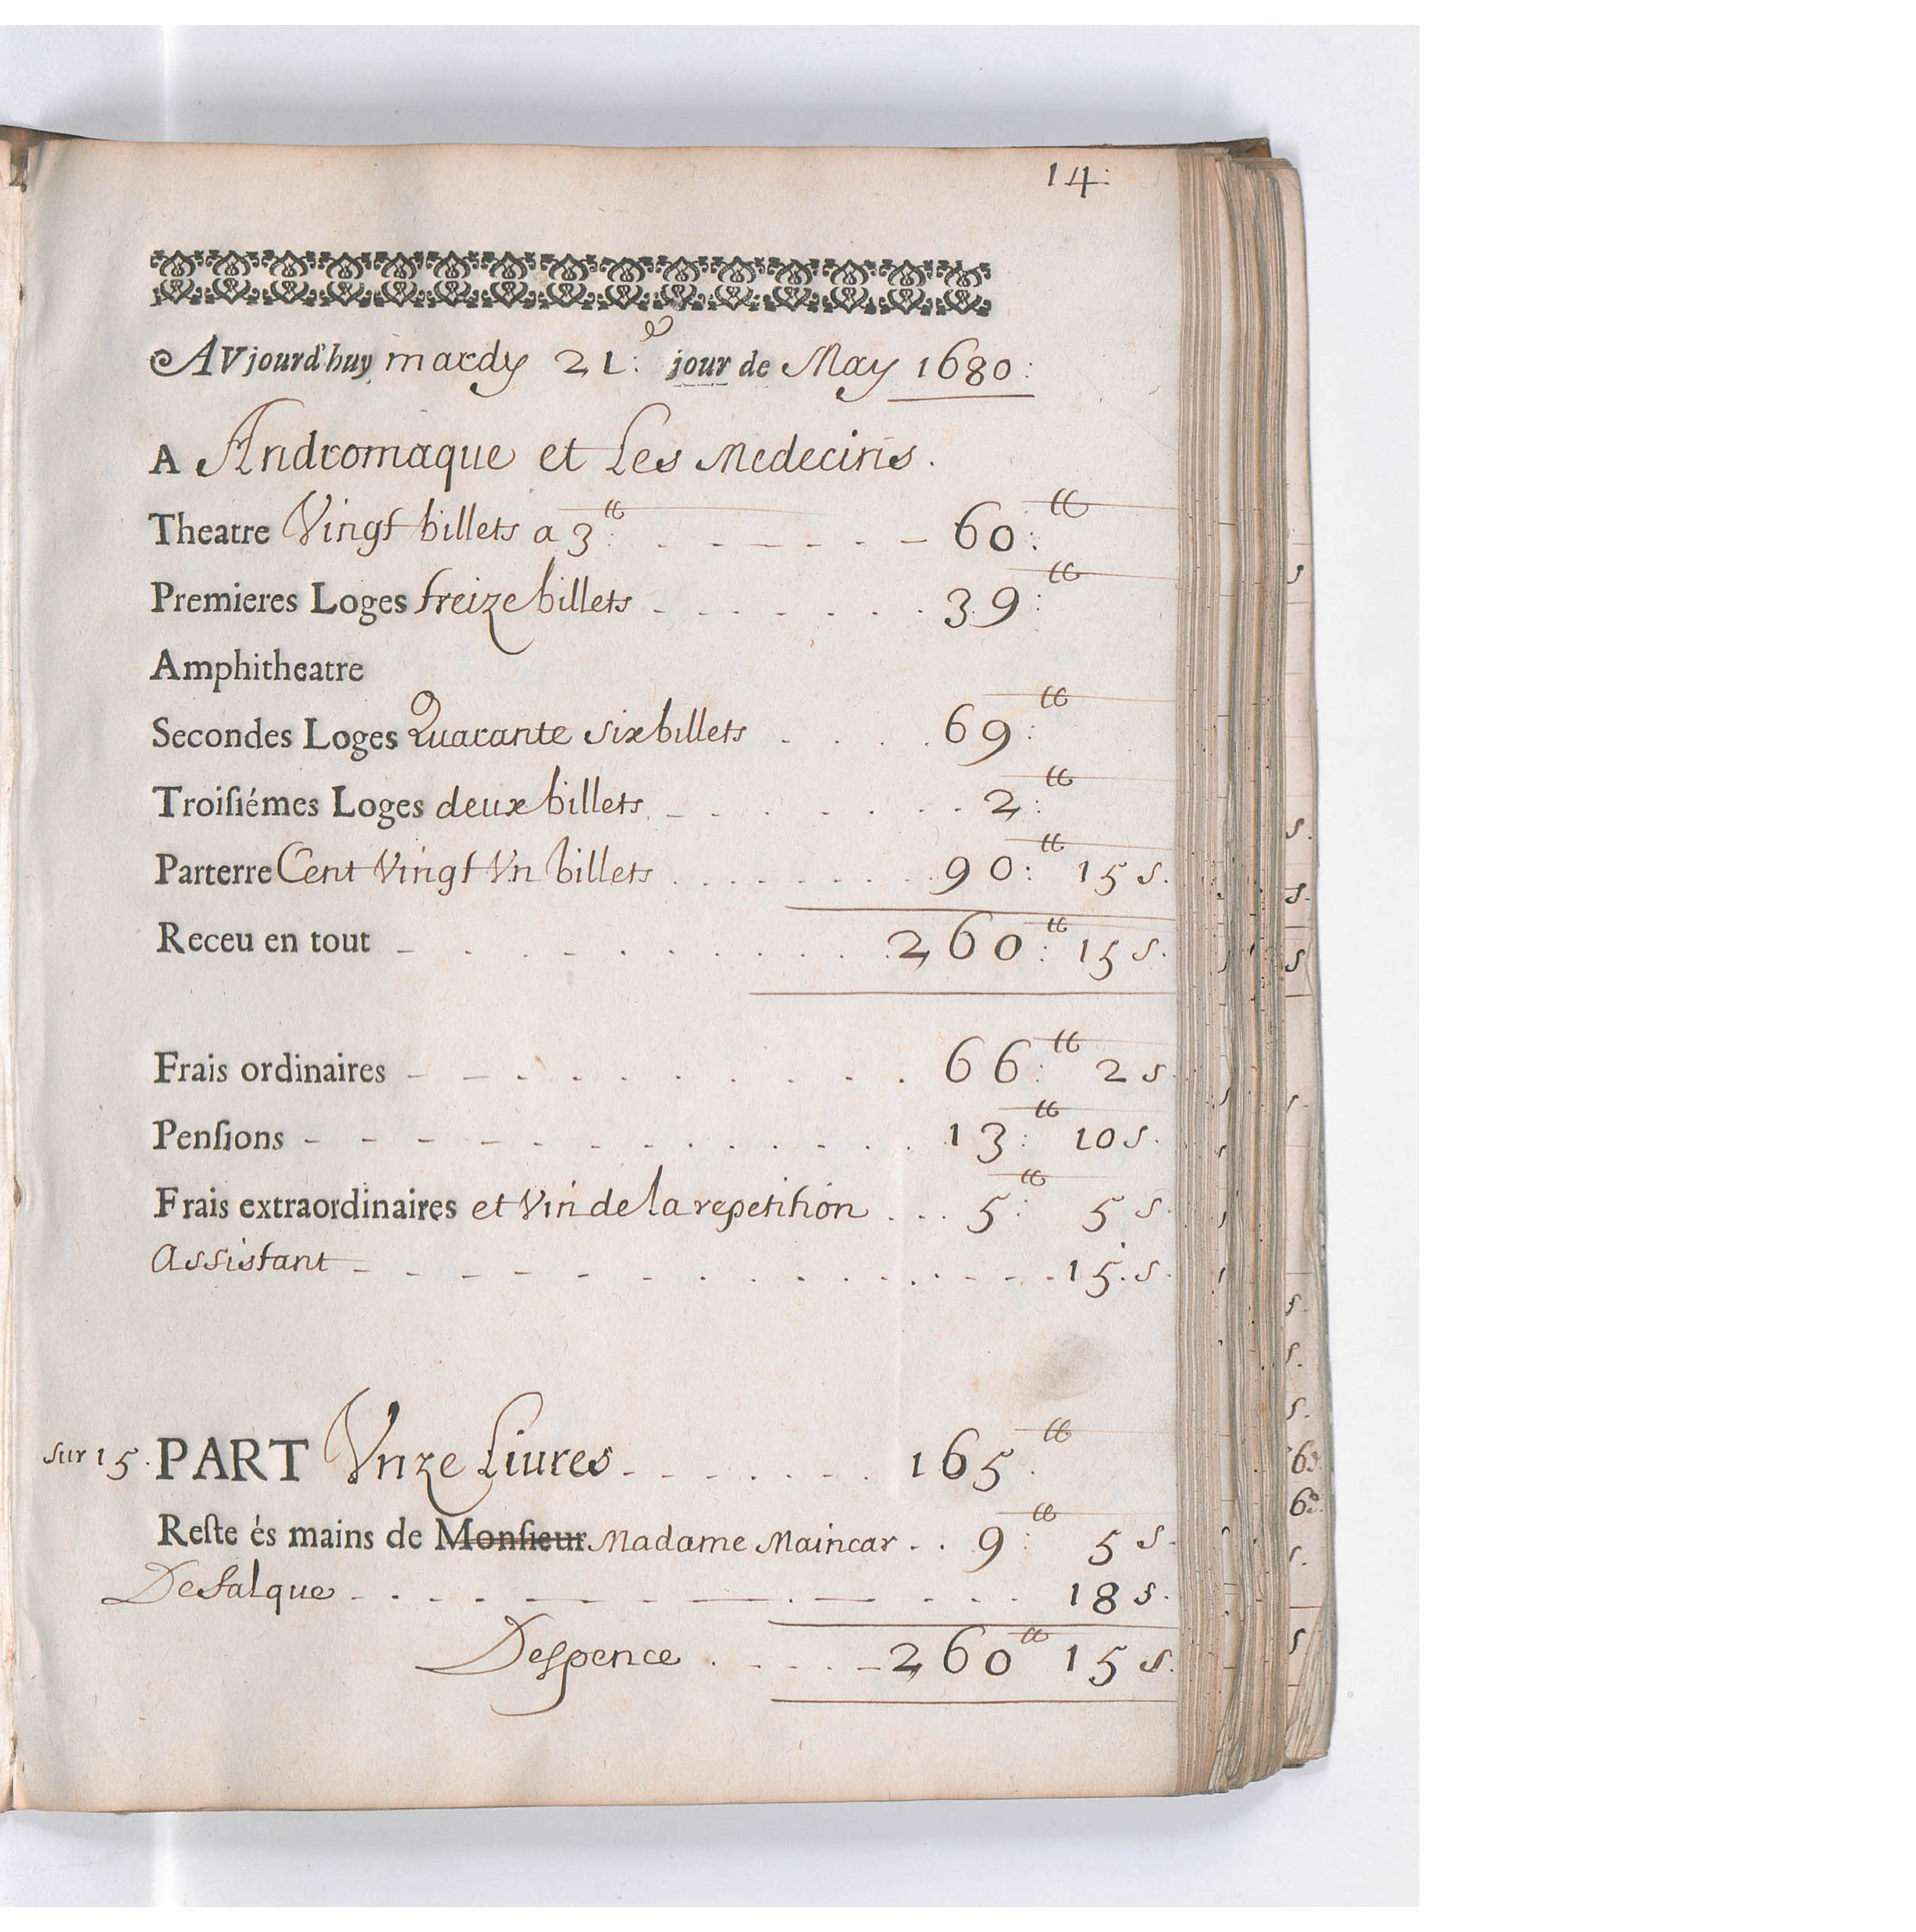 14.
AVjourd'huy mardy 21.e jour de May 1680.
A Andromaque et Les Medecins.
Theatre Vingt billets a 3.tt - - - - - 60.tt
Premieres Loges treize billets - . . . . . 39.tt
Amphitheatre
Secondes Loges Quarante six billets . . . . 69.tt
Troisiémes Loges deux billets - . . . . . 2.tt
Parterre Cent Vingt Vn billets . . . . . . 90.tt 15 s.
Receu en tout - . . . . . . . . 260.tt 15 s.
Frais ordinaires - - . . . . . . . . 66.tt 2 s.
Pensions - - - - - - . . . . . 13.tt 10 s.
Frais extraordinaires et Vin de la repetition . . . 5.tt 5 s.
Assistant - - - - - - . . . . . . - - - 15. s.
Sur 15. PART Vnze Liures - - - . . . . 165.tt
Reste és mains de Monsieur Madame Maincar . . 9.tt 5 s.
Defalque - . . . - - - - . . . 18 s.
Despence . . - - - - 260tt 15 s.